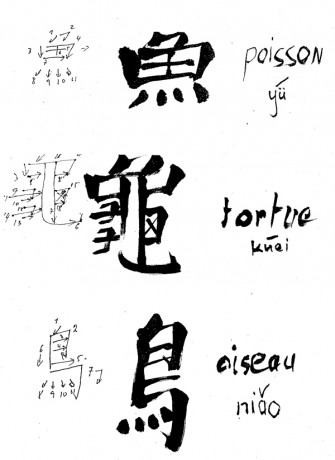 魚
poisson
yǘ
龜
tortue
kuēi
鳥
oiseau
niǎo